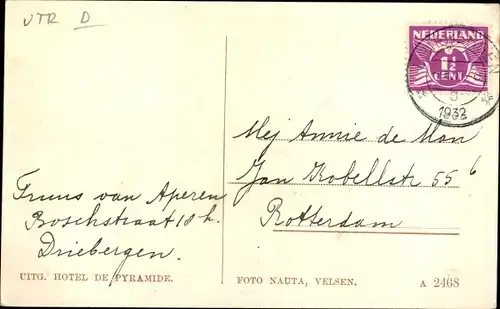 VTR D
NEDERLAND
1½
CENT
1932
Mej Annie de Man
Jan Kobellstr 55 b
Rotterdam
Truus van Aperen
Boschstraat 18 h.
Driebergen.
UITG. HOTEL DE PYRAMIDE.
FOTO NAUTA, VELSEN.
A 2468